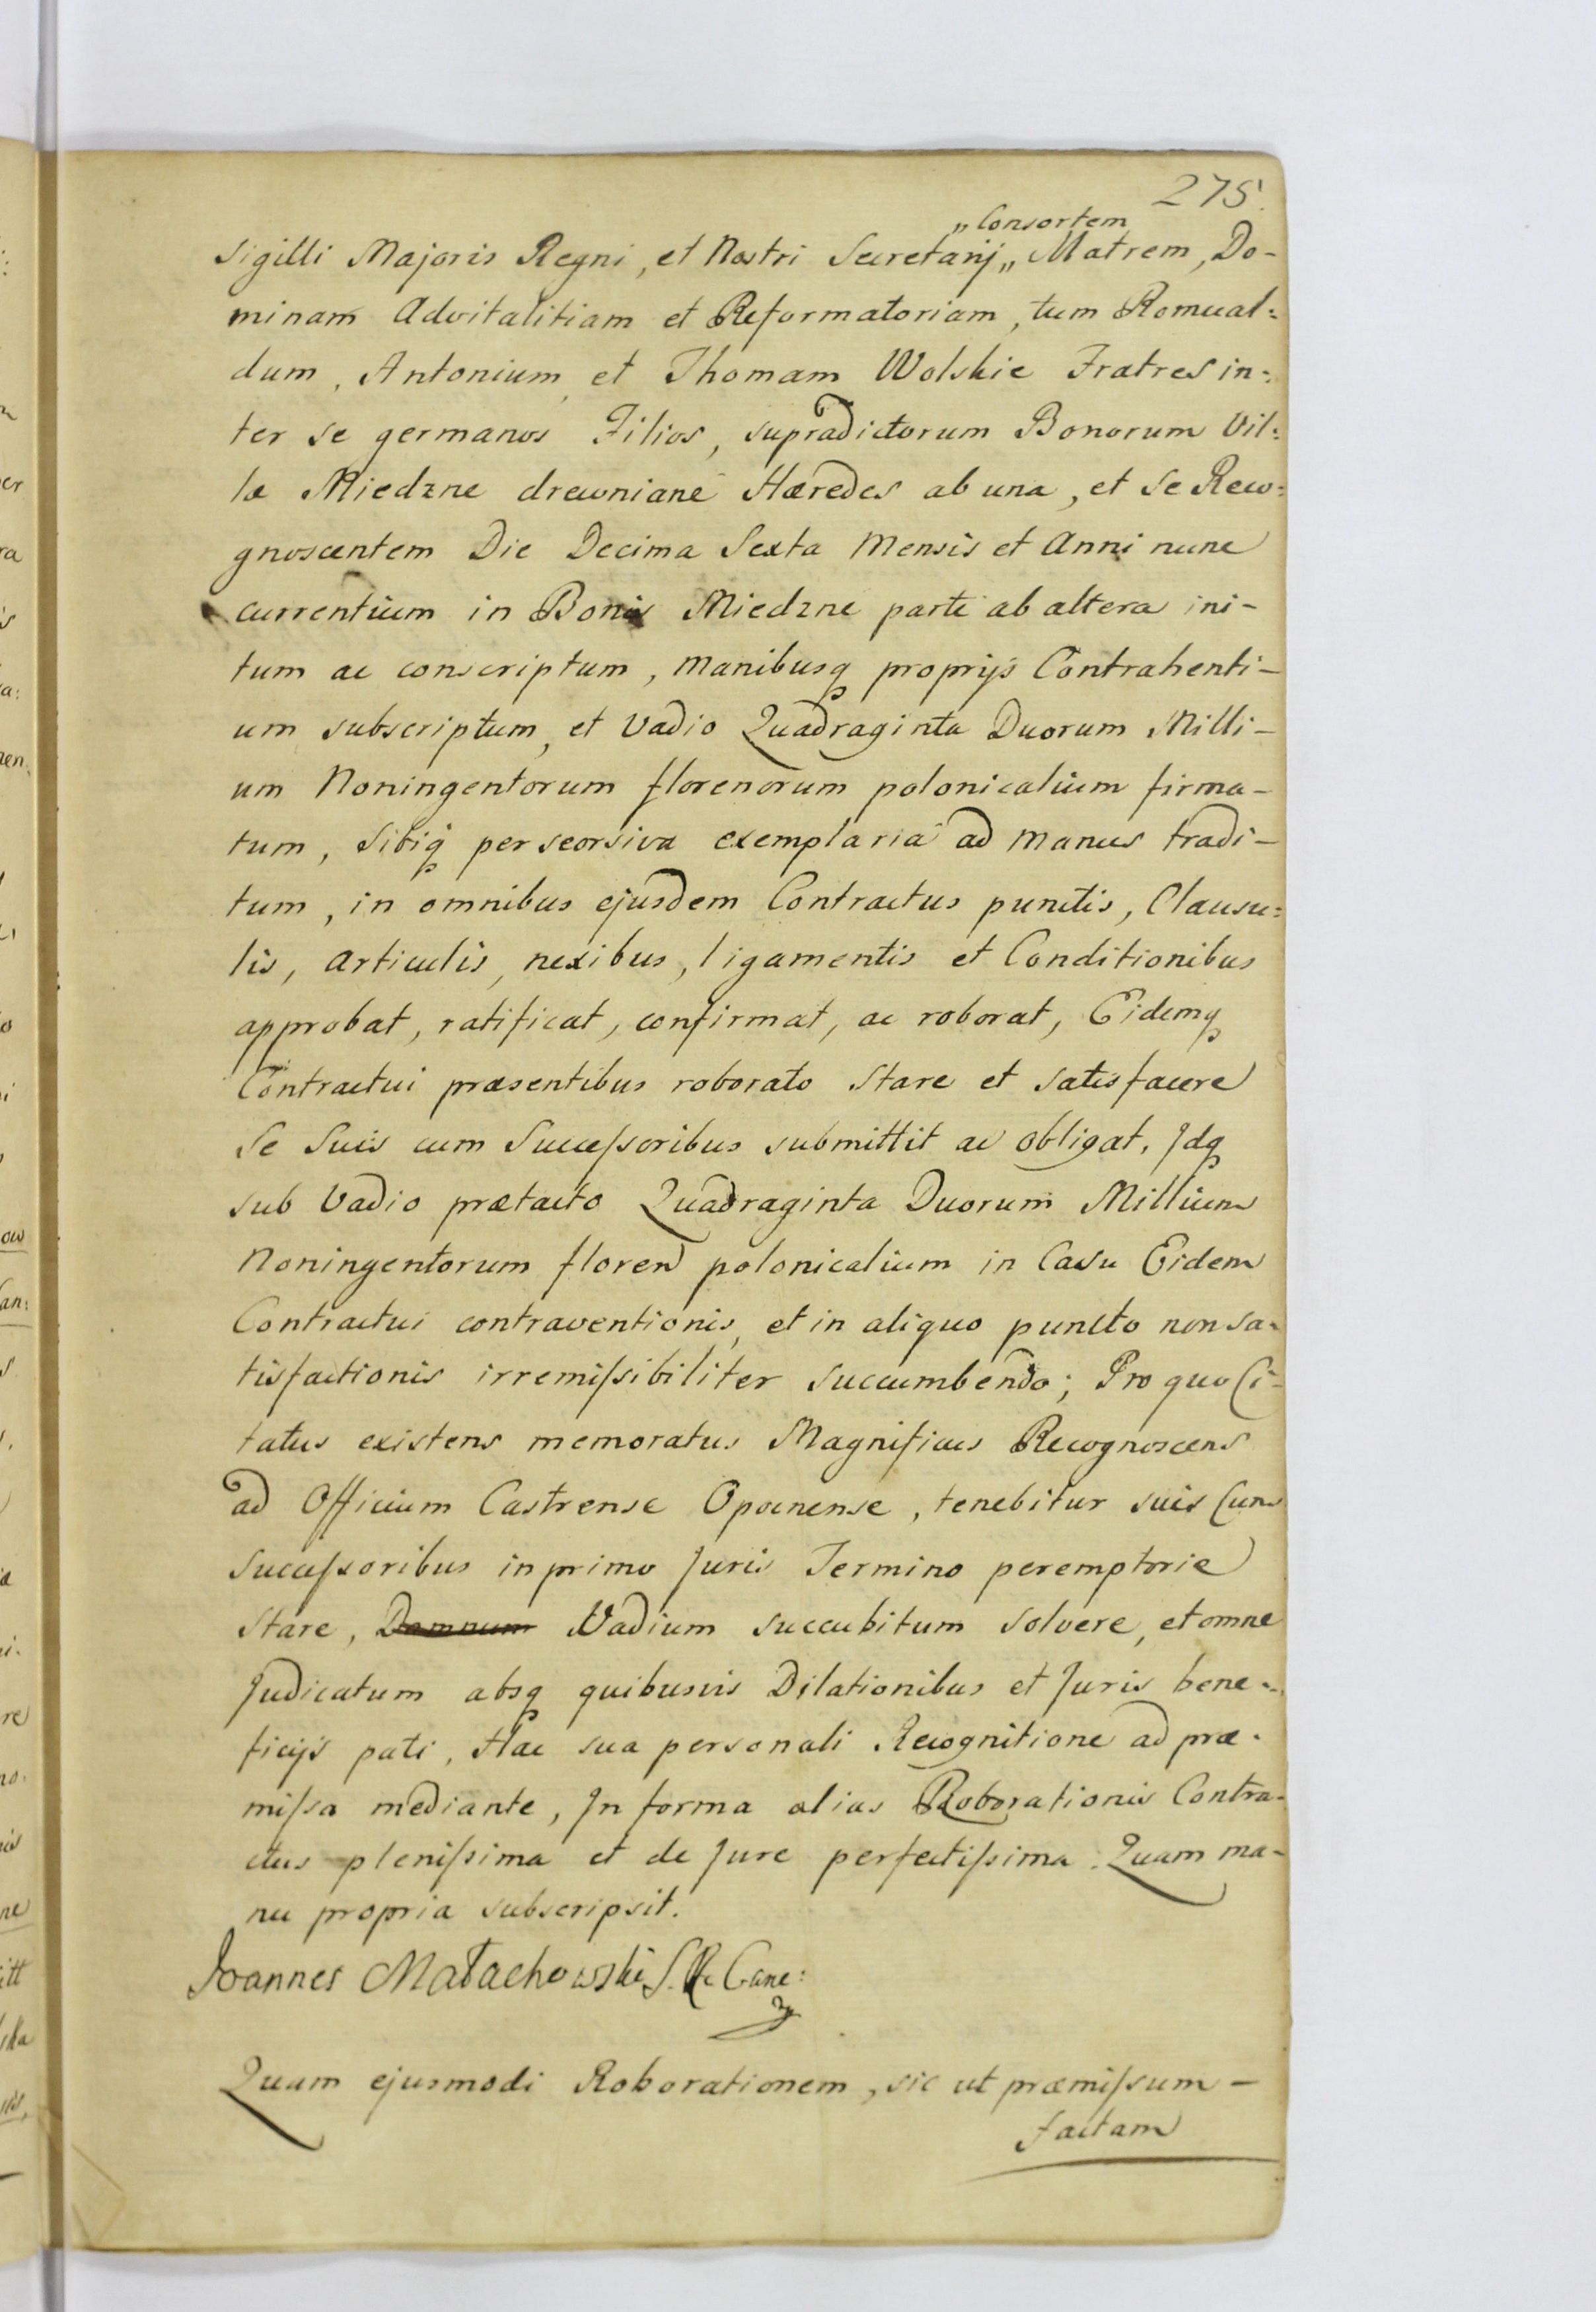 275.
„Consortem
Sigilli Majoris Regni, et Nostri Secretarij„ Matrem, Do-
minam Advitalitiam et Reformatoriam, tum Romual=
dum, Antonium, et Thomam Wolskie Fratres in=
ter se germanos Filios, supradictorum Bonorum Vil=
læ Miedzne drewniane Hæredes ab una, et se Reco=
gnoscentem Die Decima Sexta Mensis et Anni nunc
currentium in Bonis Miedzne parte ab altera ini-
tum ac conscriptum, manibusq proprijs Contrahenti-
um subscriptum, et Vadio Quadraginta Duorum Milli-
um Noningentorum florenorum polonicalium firma-
tum, sibiq per seorsiva exemplaria ad manus tradi-
tum, in omnibus ejusdem Contractus punctis, Clausu=
lis, Articulis, nexibus, ligamentis et Conditionibus
approbat, ratificat, confirmat, ac roborat, Eidemq
Contractui præsentibus roborato Stare et satisfacere
Se Suis cum Successoribus submittit ac obligat. Idq
sub Vadio prætacto Quadraginta Duorum Millium
Noningentorum floren polonicalium in Casu Eidem
Contractui contraventionis, et in aliquo puncto non sa-
tisfactionis irremissibiliter succumbendo; Pro quo Ci-
tatus existens memoratus Magnificus Recognoscens
ad Officium Castrense Opocnense, tenebitur suis Cum
Successoribus in primo Juris Termino peremptorie
Stare, Damnum Vadium succubitum solvere, et omne
Judicatum absq quibusvis Dilationibus et Juris bene-
ficijs pati, Hac sua personali Recognitione ad præ-
missa mediante, In forma alias Roborationis Contra-
ctus plenissima et de Jure perfectissima. Quam ma-
nu propria subscripsit.
Joannes Małachowski S. R. Canc:
Quam ejusmodi Roborationem, sic ut præmissum -
factam